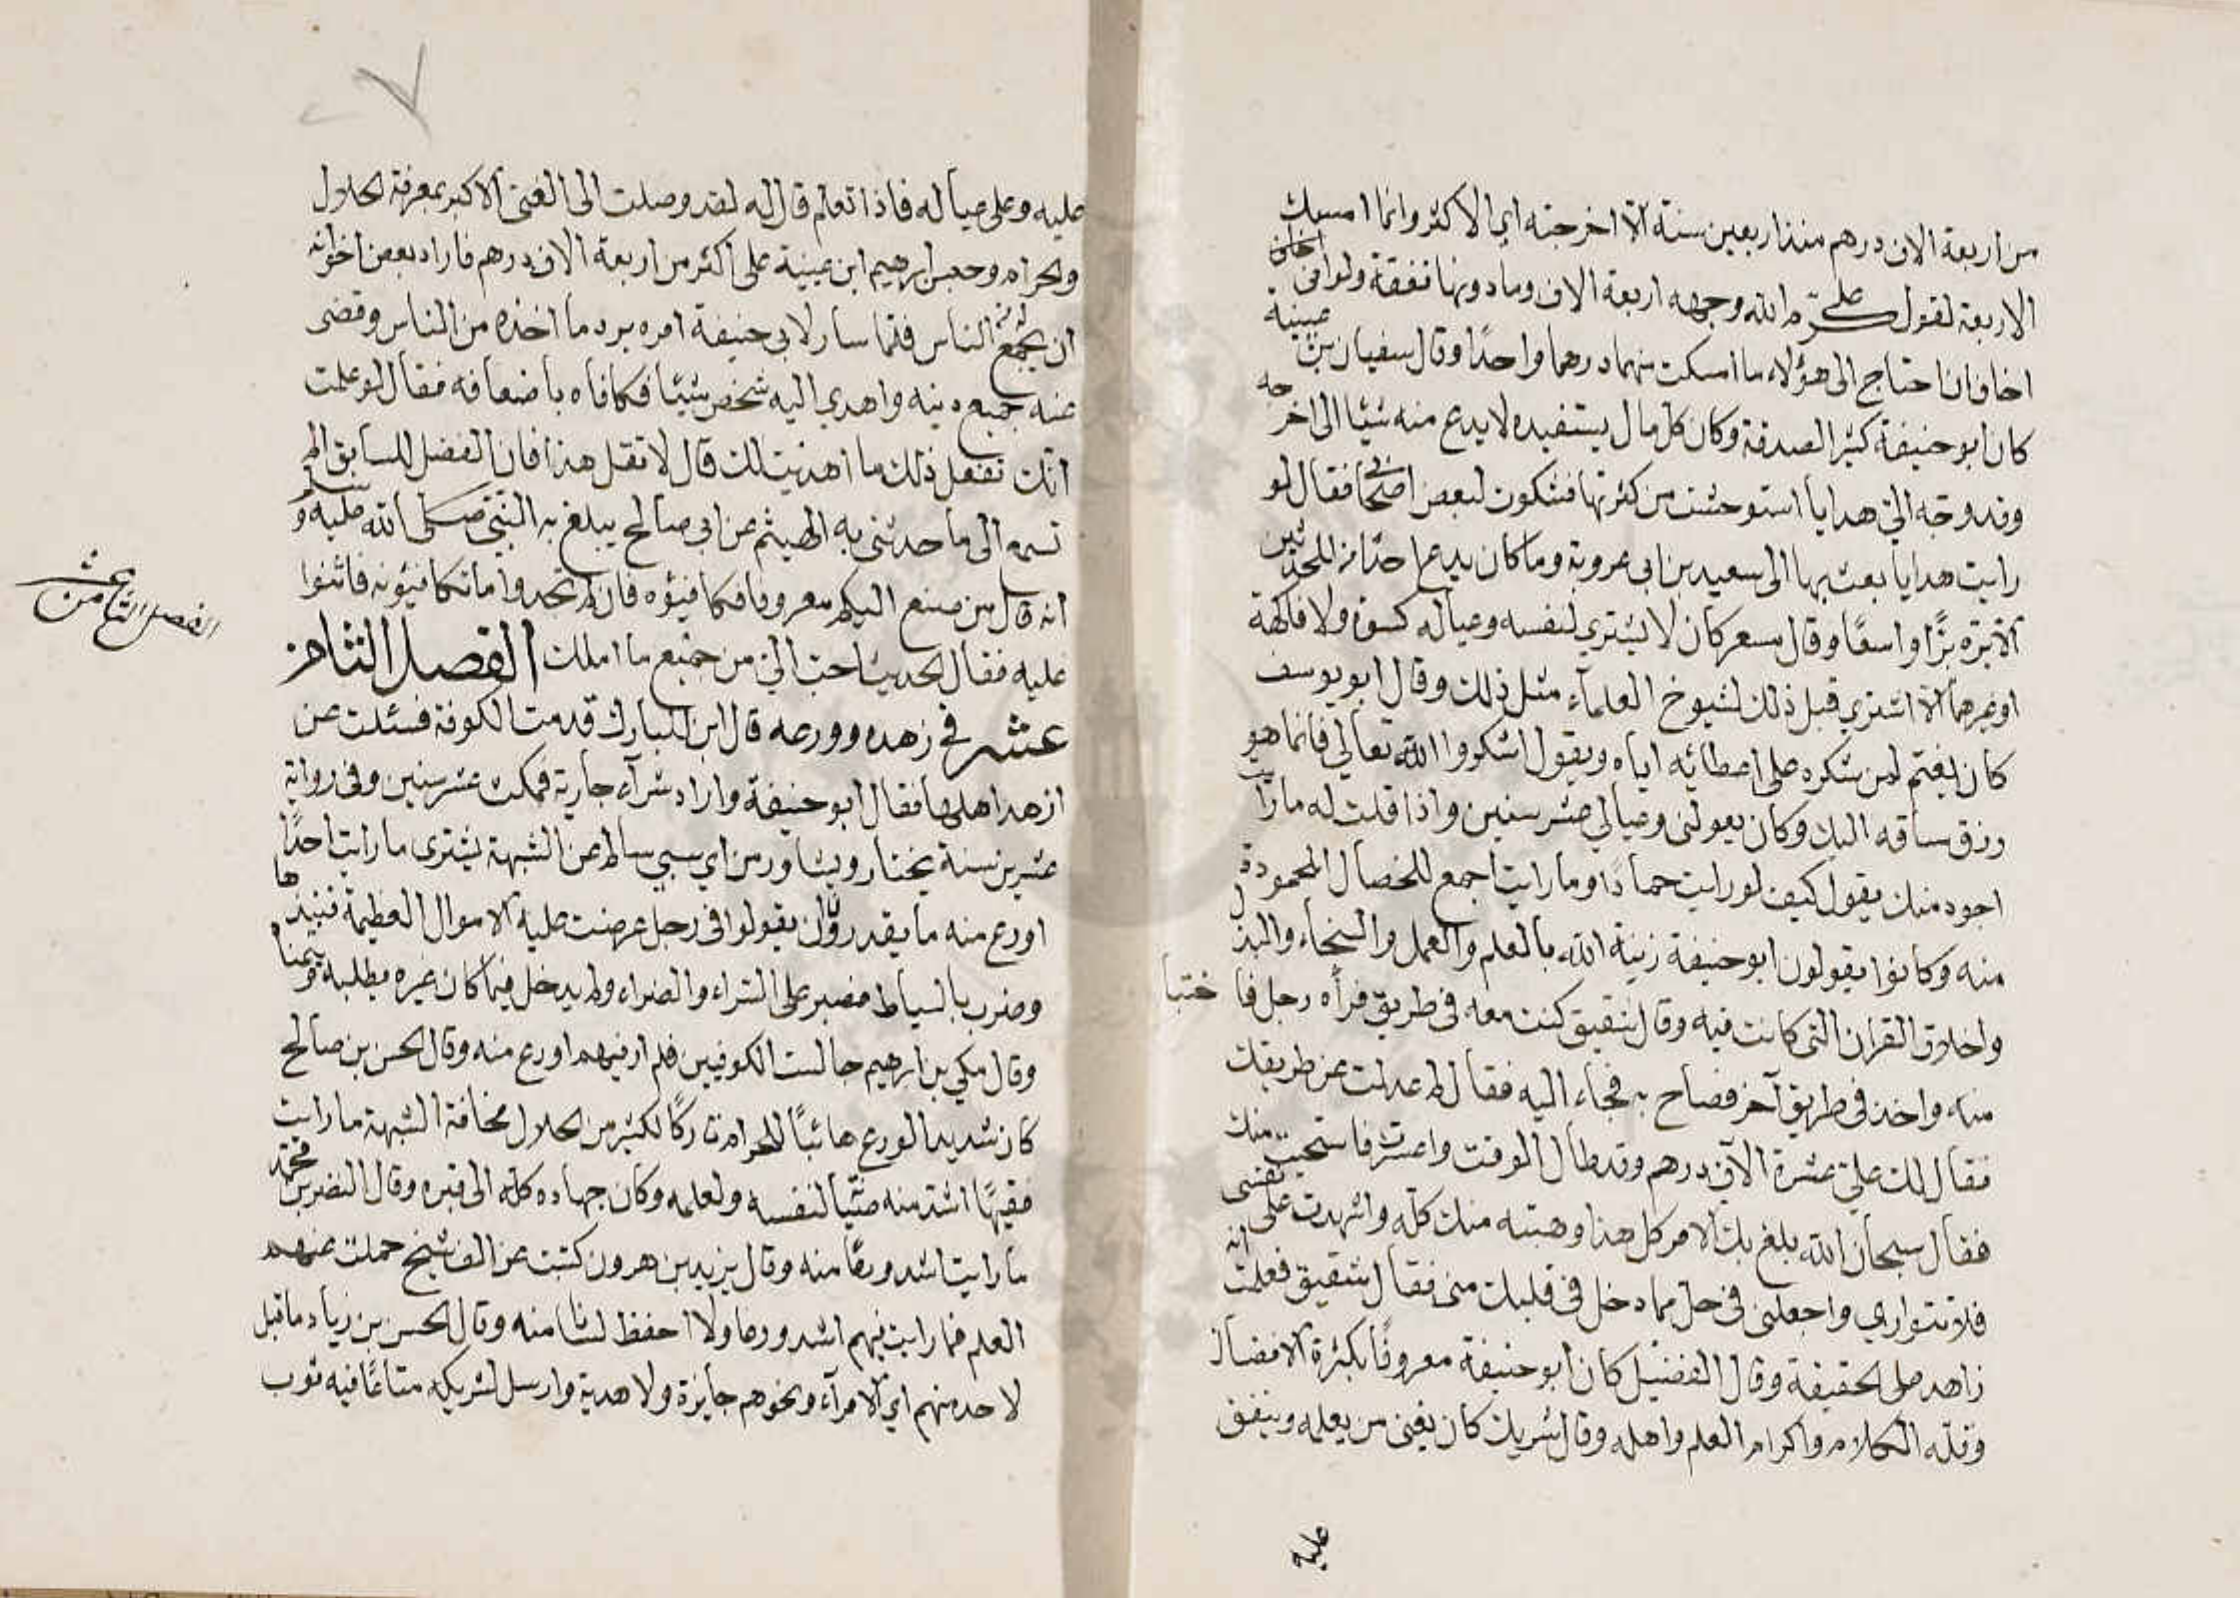 من اربعة الاف درهم منذ اربعين سنة الا اخرجته اي الاكثر وانما امسك
الاربعة لقول علي كرم الله وجهه اربعة الاف وما دونها نفقة ولولا اني اخاف
اخاف ان احتاج الى هؤلاء ما امسكت منهما درهما واحدًا وقال سفيان بن عيينة
كان ابو حنيفة كثير الصدقة وكان كل مال يستفيده لا يدع منه شيئا الى اخرجه
وقد وجه الي هدايا استوحشت من كثرتها فشكون لبعض اصحابه فقال لو
رايت هدايا بعث بها الى سعيد بن ابي عروبة وما كان يدع احدًا من المحدثين
الا بره برًّا واسعًا وقال مسعر كان لا يشتري لنفسه وعياله كسوة ولا فاكهة
او غيرهما الا اشتري قبل ذلك لشيوخ العلماء مثل ذلك وقال ابو يوسف
كان يغتم لمن شكره على اعطائه اياه ويقول اشكروا الله تعالي فانما هو
رزق ساقه اليك وكان يعولني وعيالي عشر سنين واذا قلت له ما رايت
اجود منك يقول كيف لو رايت حمادًا وما رايت اجمع للخصال المحمودة
منه وكانوا يقولون ابو حنيفة زينة الله بالعلم والعمل والسخاء والبذل
واخلاق القران التي كانت فيه وقال شقيق كنت معه في طريق فرآه رجل فاختبأ
منه واخذ في طريق آخر فصاح به فجاء اليه فقال لم عدلت عن طريقك
فقال لك علي عشرة الاف درهم وقد طال الوقت واعسرت فاستحيت منك
فقال سبحان الله بلغ بك الامر كل هذا وهبته منك كله واشهدت على نفسي
فلا تتواري واجعلني في حل مما دخل في قلبك مني فقال شقيق فعلمت انه
زاهد على الحقيقة وقال الفضيل كان ابو حنيفة معروفًا بكثرة الافضال
وقلة الكلام واكرام العلم واهله وقال شريك كان يغني من يعلمه وينفق
عليه
عليه وعلى عياله فاذا تعلم قال له لقد وصلت الى الغنى الاكبر بمعرفة الحلال
والحرام وحبس ابرهيم ابن عيينة على اكثر من اربعة الاف درهم فاراد بعض اخوانه
ان يجمع له من الناس فلما سار لابي حنيفة امره برد ما اخذه من الناس وقضى
عنه جميع دينه واهدي اليه شخص شيئا فكافاه باضعافه فقال لو علمت
انك تفعل ذلك ما اهديت لك قال لا تقل هذا فان الفضل للسابق الم
تسمع الى ما حدثني به الهيثم عن ابي صالح يبلغ به النبي صلى الله عليه وسلم
انه قال من صنع اليكم معروفا فكافئوه فان لم تجدوا ما تكافئونه فاثنوا
عليه فقال الحديث احب الي من جميع ما املك الفصل الثامن
عشر في زهده وورعه قال ابن المبارك قدمت الكوفة فسئلت عن
ازهد اهلها فقال ابو حنيفة واراد شرآء جارية فمكث عشر سنين وفي رواية
عشرين سنة يختار ويشاور من اي سبي سالم عن الشبهة يشترى ما رايت احدًا
اورع منه ما يقدروا ان يقولوا في رجل عرضت عليه الاموال العظيمة فنبذها
وضرب بالسياط فصبر على السراء والضراء ولم يدخل فيما كان غيره يطلبه ويتمناه
وقال مكي بن ابرهيم جالست الكوفيين فلم ار فيهم اورع منه وقال الحسن بن صالح
كان شديد الورع هائبًا للحرام تاركًا لكثير من الحلال مخافة الشبهة ما رايت
فقيهًا اشد منه صيانة لنفسه ولعلمه وكان جهاده كله الى قبره وقال النضر بن محمد
ما رايت اشد ورعًا منه وقال يزيد بن هرون كتبت عن الف شيخ حملت عنهم
العلم فما رايت فيهم اشد ورعا ولا احفظ لسانا منه وقال الحسن بن زياد ما قبل
لاحد منهم اي الامرآء ونحوهم جايزة ولا هدية وارسل لشريكه متاعًا فيه ثوب
الفصل الثامن عشر